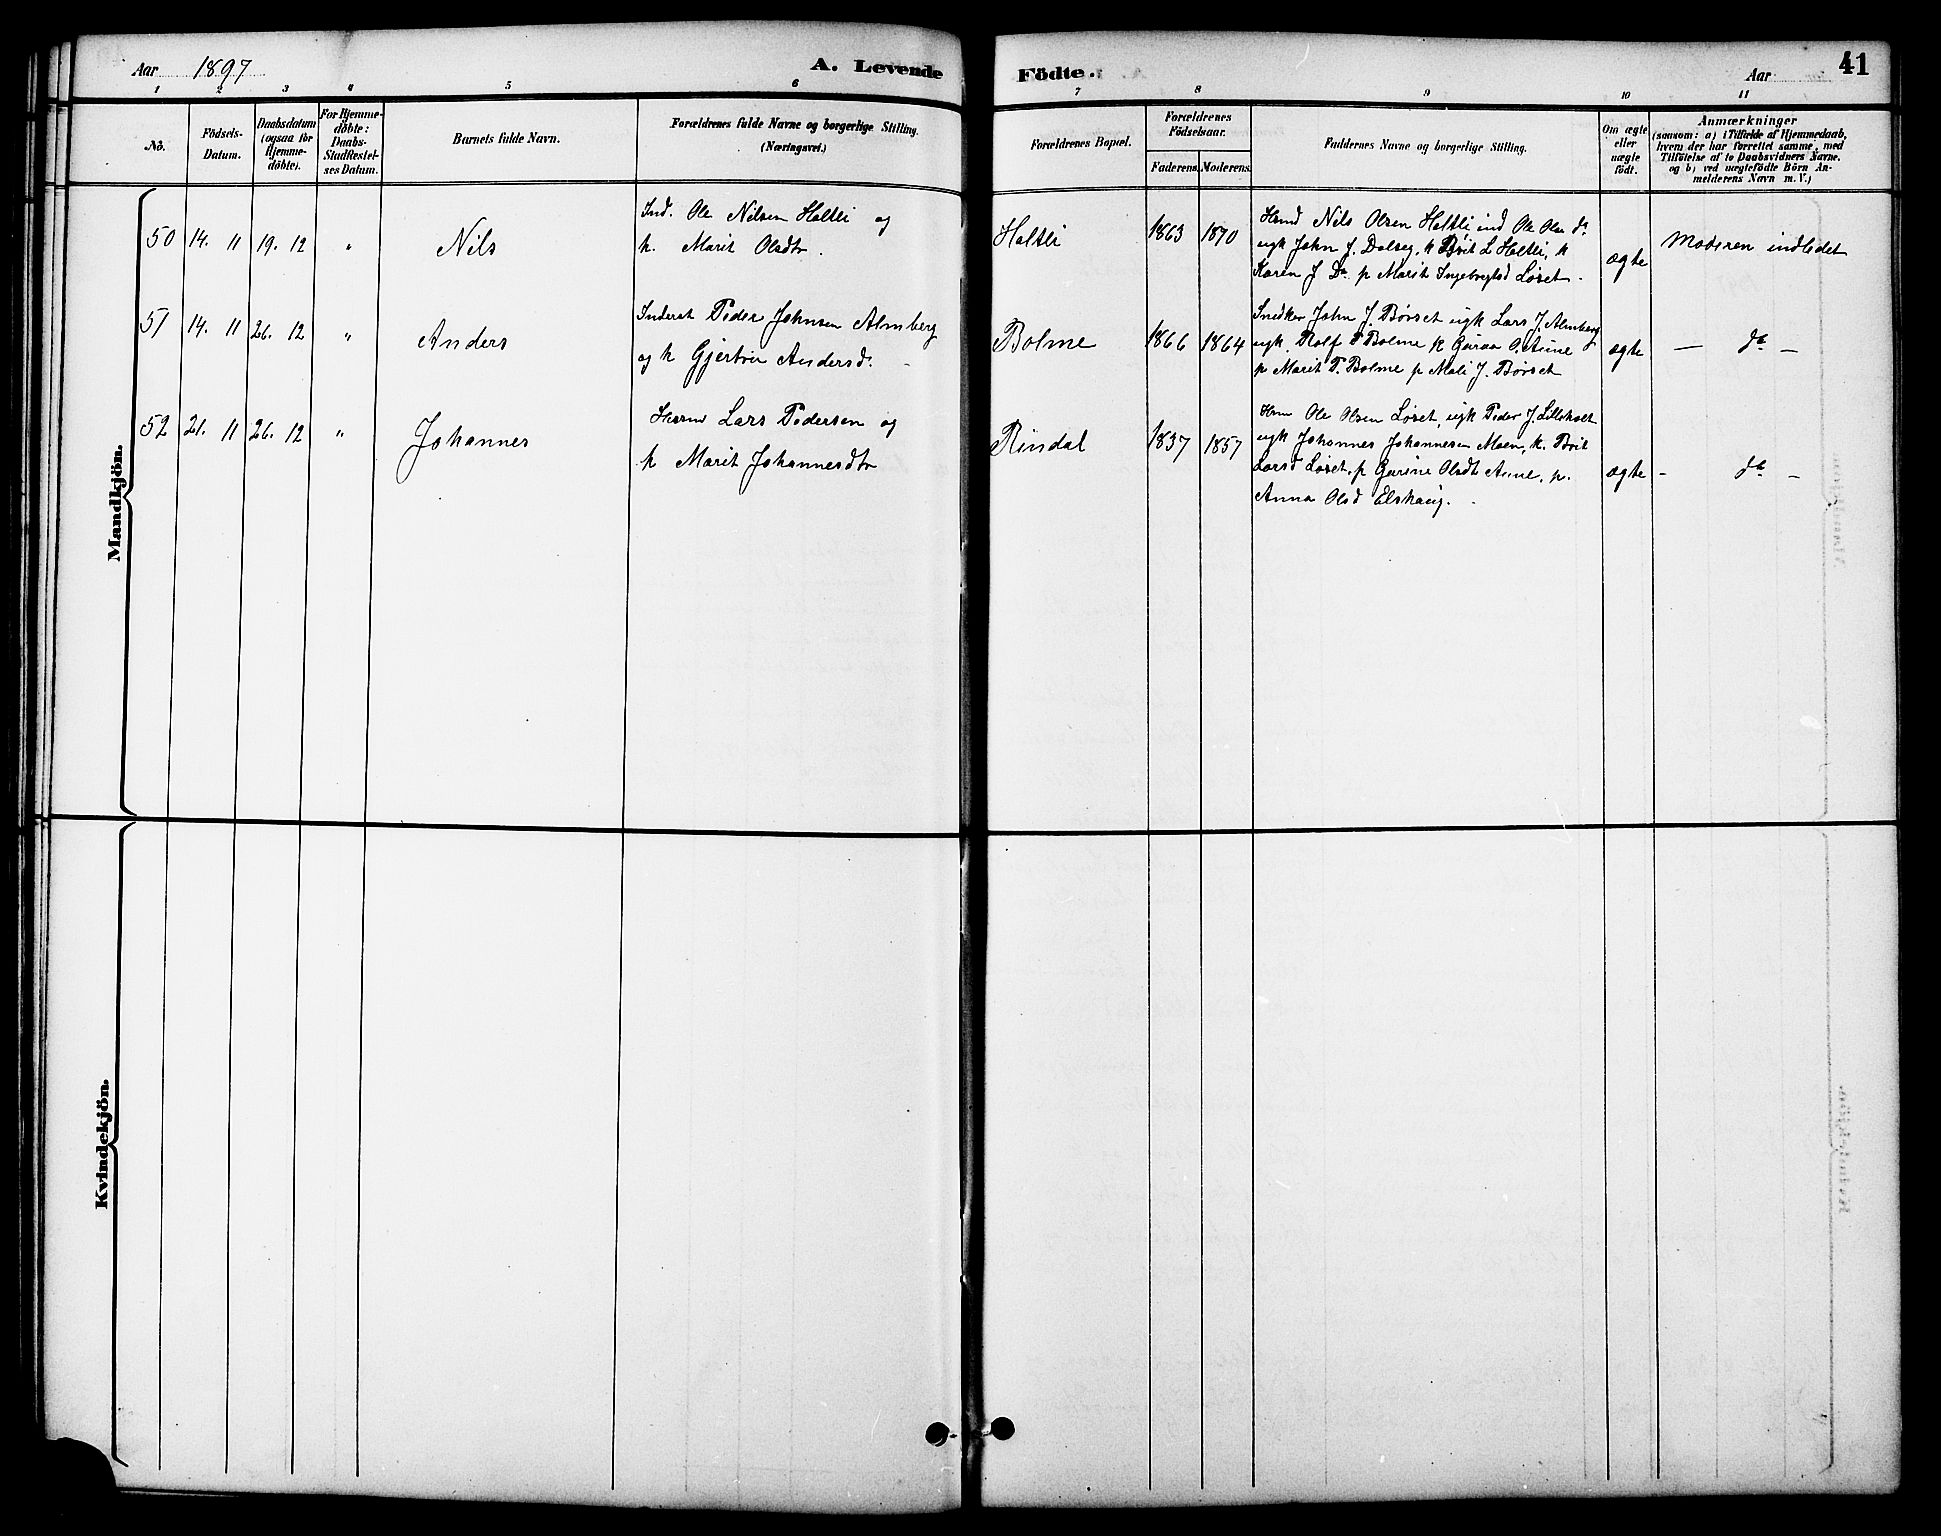 Aar 1897
A. Levende Födte.
Aar
41
1 2 3 4 5 6 7 8 9 10 11
No.
Födsels-
Datum.
Daabsdatum
(ogsaa for
Hjemme-
döbte).
For Hjemme-
döbte:
Daabs-
Stadfæstel-
ses Datum.
Barnets fulde Navn.
Forældrenes fulde Navne og borgerlige Stilling.
(Næringsvei.)
Forældrenes Bopæl.
Forældrenes
Födselsaar.
Faderens. Moderens.
Faddernes Navne og borgerlige Stilling.
Om ægte
eller
uægte
født.
Anmærkninger
(saasom: a) i Tilfælde af Hjemmedaab,
hvem der har forrettet samme, med
Tilföielse af to Daabsvidners Navne.
og b) ved uægtefödte Börn An-
melderens Navn m. V.)
Mandkjön.
50 14. 11 19. 12 " Nils
Ind. Ole Nilsen Haltli og
k. Marit Olsdtr.
Haltli 1863 1870
Hsmd Nils Olsen Haltli ind Ole Olsn do
ugk John J. Dalseg, k Brit L Haltli, k
Karen J Do p Marit Ingebregtsd Løset.
ægte
Moderen indledet
51 14. 11 26. 12 " Anders
Inderst Peder Johnsen Almberg
og k Gjertrur Andersd.
Bolme 1866 1864
Snedker John J. Børset ugk Lars J. Almberg
ugk. Rolf P Bolme k Guraa O. Aune
p Marit P. Bolme p Mali J. Børset
ægte
— do —
52 21. 11 26. 12 " Johannes
Lars Pedersen og
k Marit Johannesdtr
Rindal 1837 1857
Ole Olsen Løset, ugk Peder J. Lilleholt
ugk Johannes Johannesen Moen, k. Brit
Larsd Løset, p Gurine Olsdt Aune, p.
Anna Olsd Elshaug.
ægte
- do -
Kvindekjön.